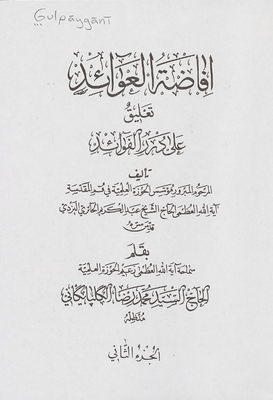 Gulpāygānī
افاضة العوائد
تعليق
على درر الفوائد
تأليف
المرحوم المبرور مؤسس الحوزة العلمية في قم المقدسة
آية الله العظمى الحاج الشيخ عبد الكريم الحائري اليزدي
قدس سره
بقلم
سماحة آية الله العظمى زعيم الحوزة العلمية
الحاج السيد محمد رضا الگلپايگاني
مد ظله
الجزء الثاني